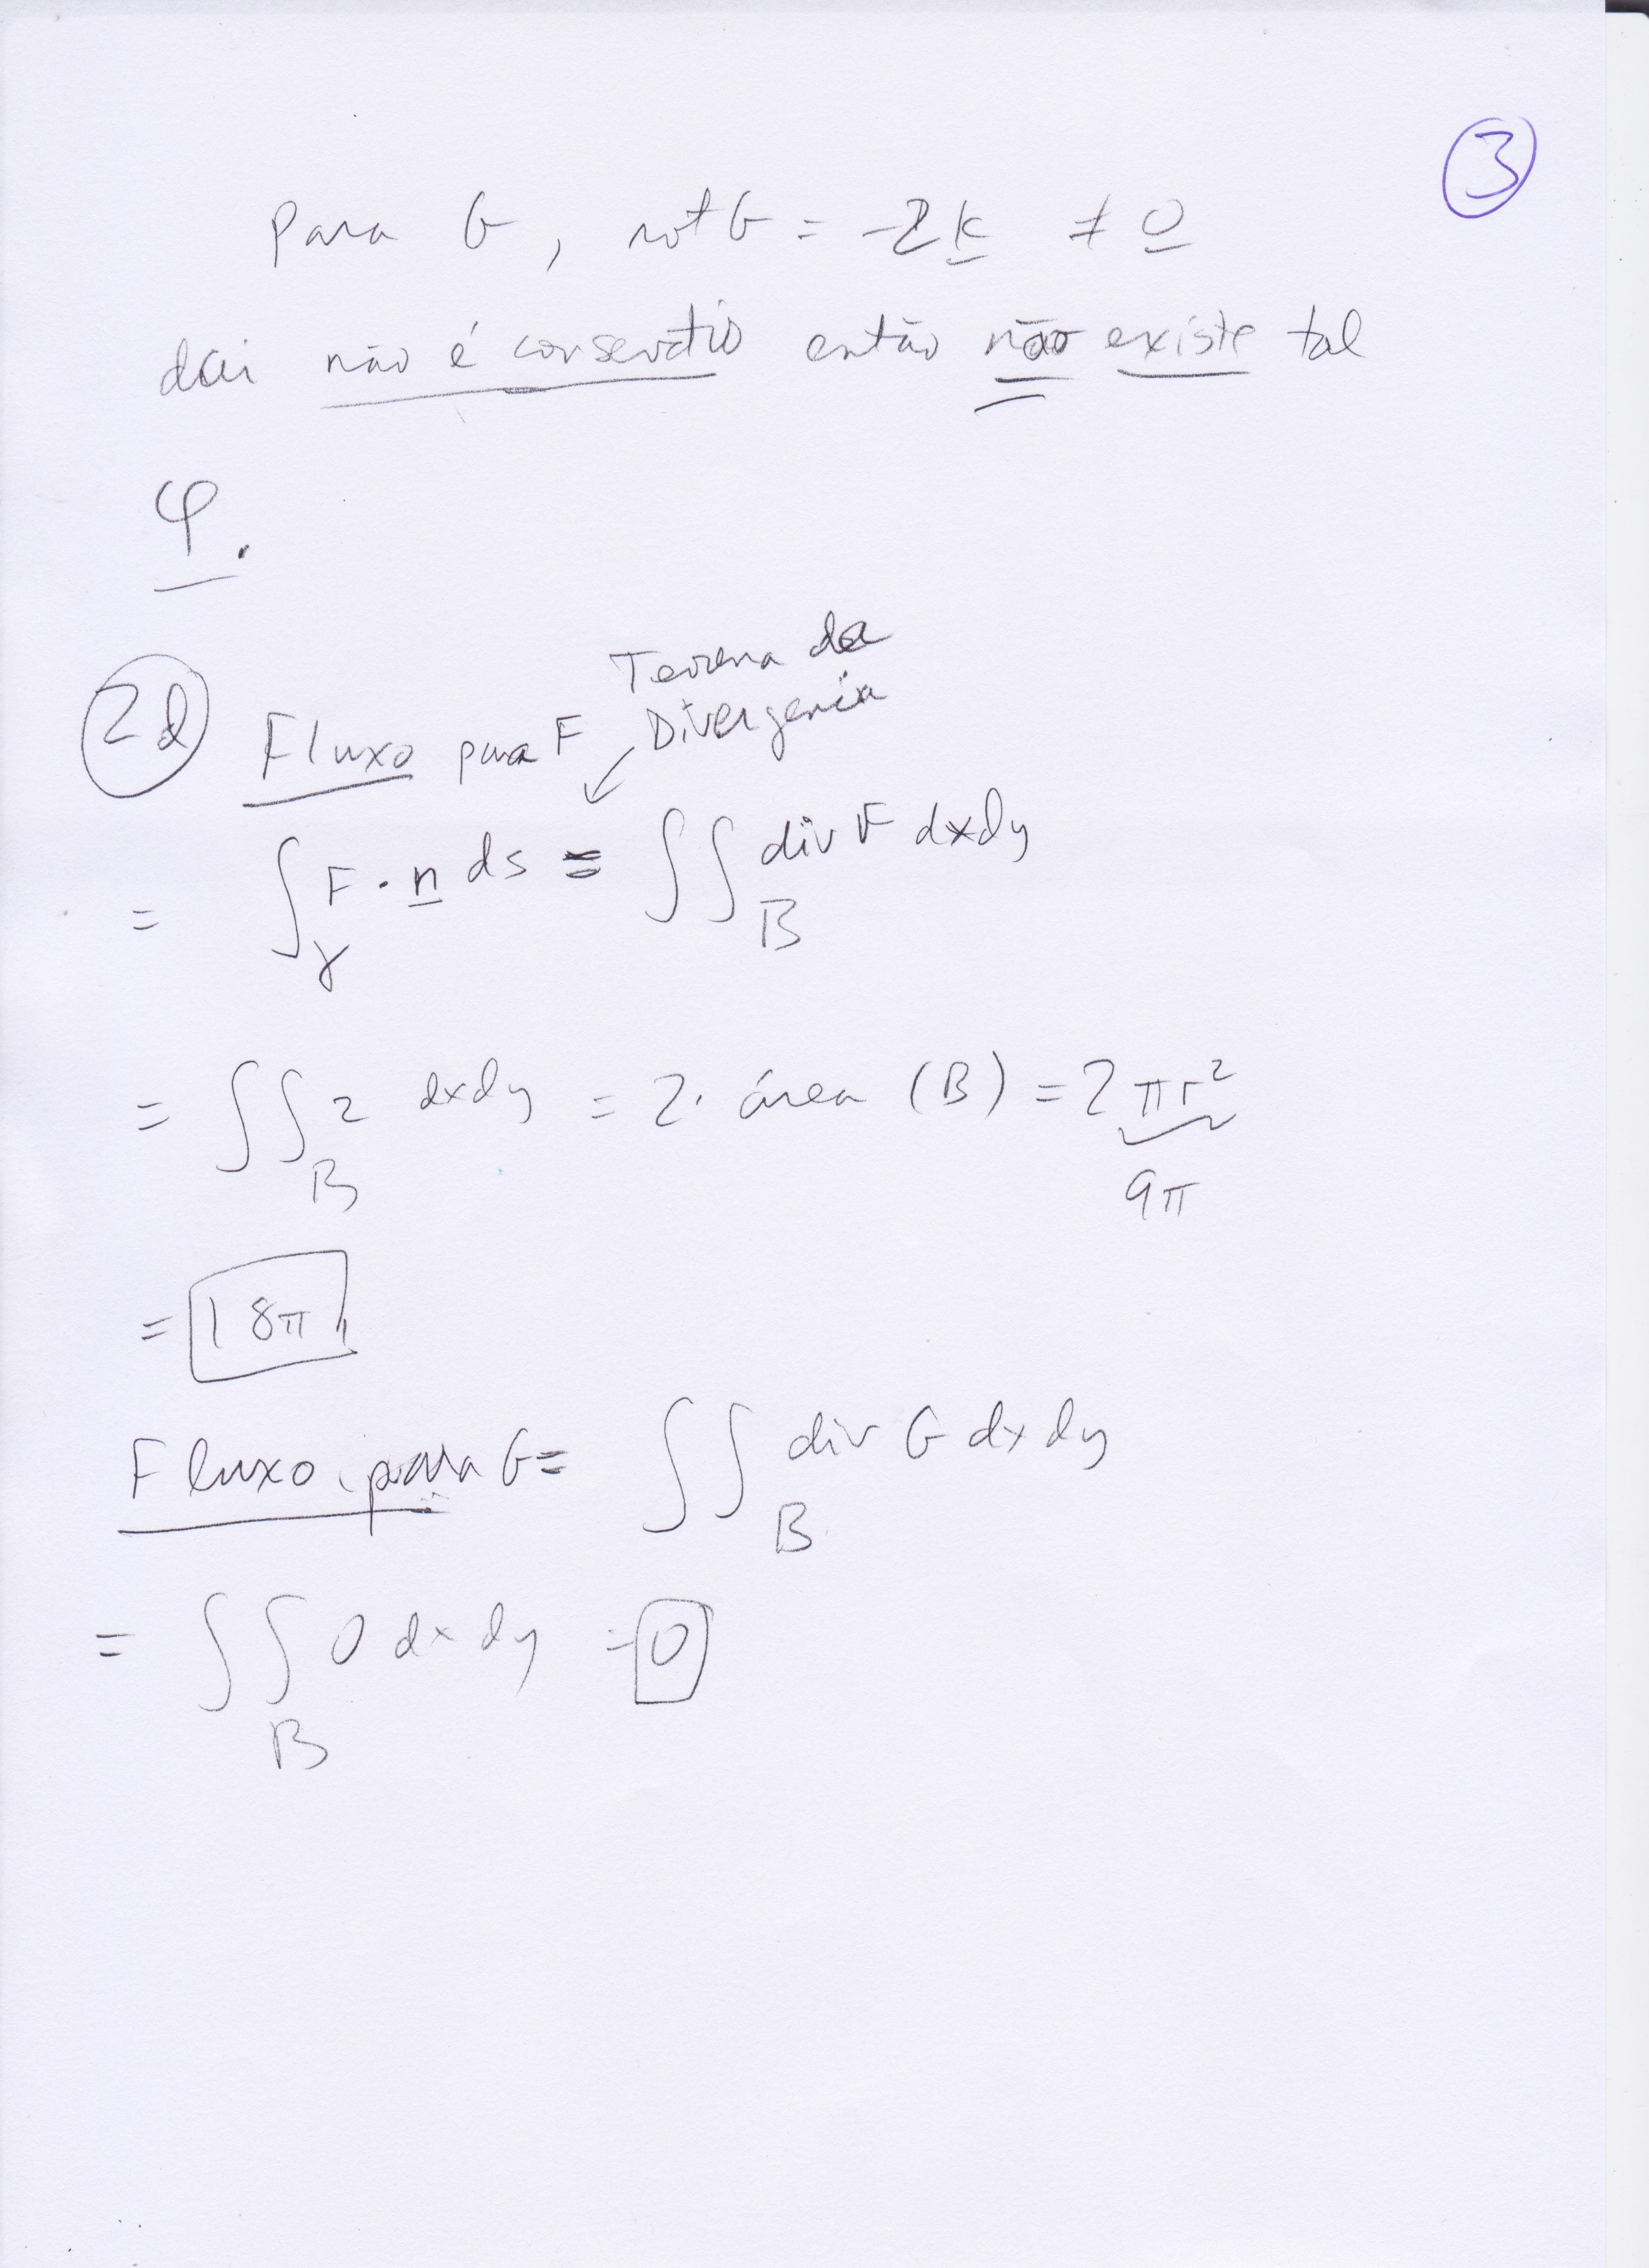 3
Para G, rot G = -2 k ≠ 0
daí não é conservatio então não existe tal
φ.
2d Fluxo para F
Teorema da
Divergencia
= ∫γ F · n ds = ∫∫B div F dxdy
= ∫∫B 2 dxdy = 2 · área (B) = 2 πr²
9π
= 18π
Fluxo para G = ∫∫B div G dx dy
= ∫∫B 0 dx dy = 0